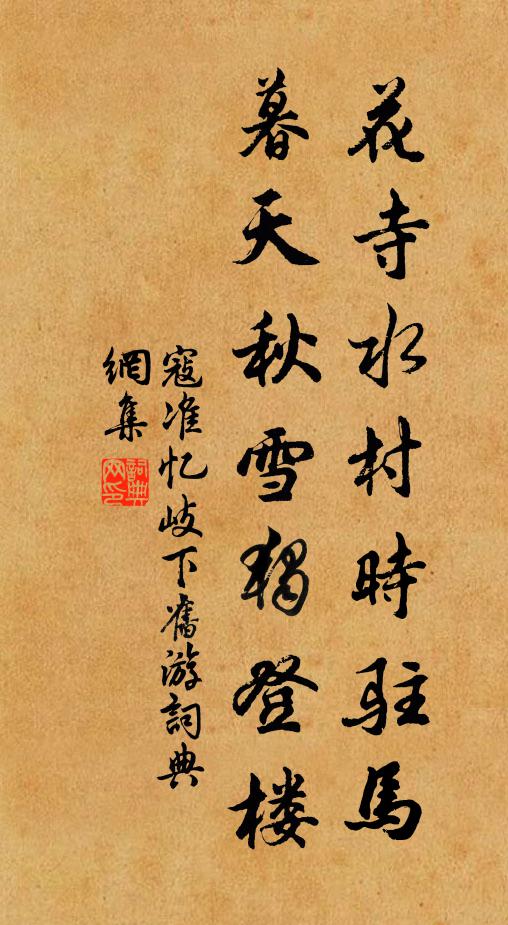 花寺水村時駐馬
暮天秋雪獨登楼
寇准忆歧下舊游詞典
網集
詞典
网印